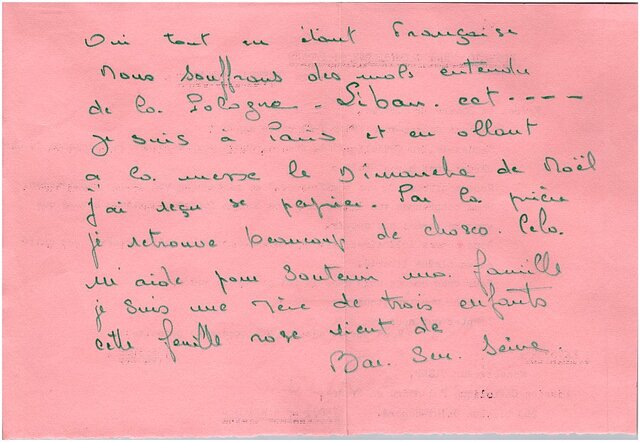 Oui tout en étant Française
Nous souffrons des mots entendu
de la Pologne - Liban. ect - - - -
je suis à Paris et en allant
a la messe le Dimanche de Noël
j'ai reçu se papier. Par la prière
je retrouve beaucoup de choses. Cela
mi aide pour soutenir ma famille
je suis une Mère de trois enfants
cette feuille rose vient de
Bar. Sur. Seine.